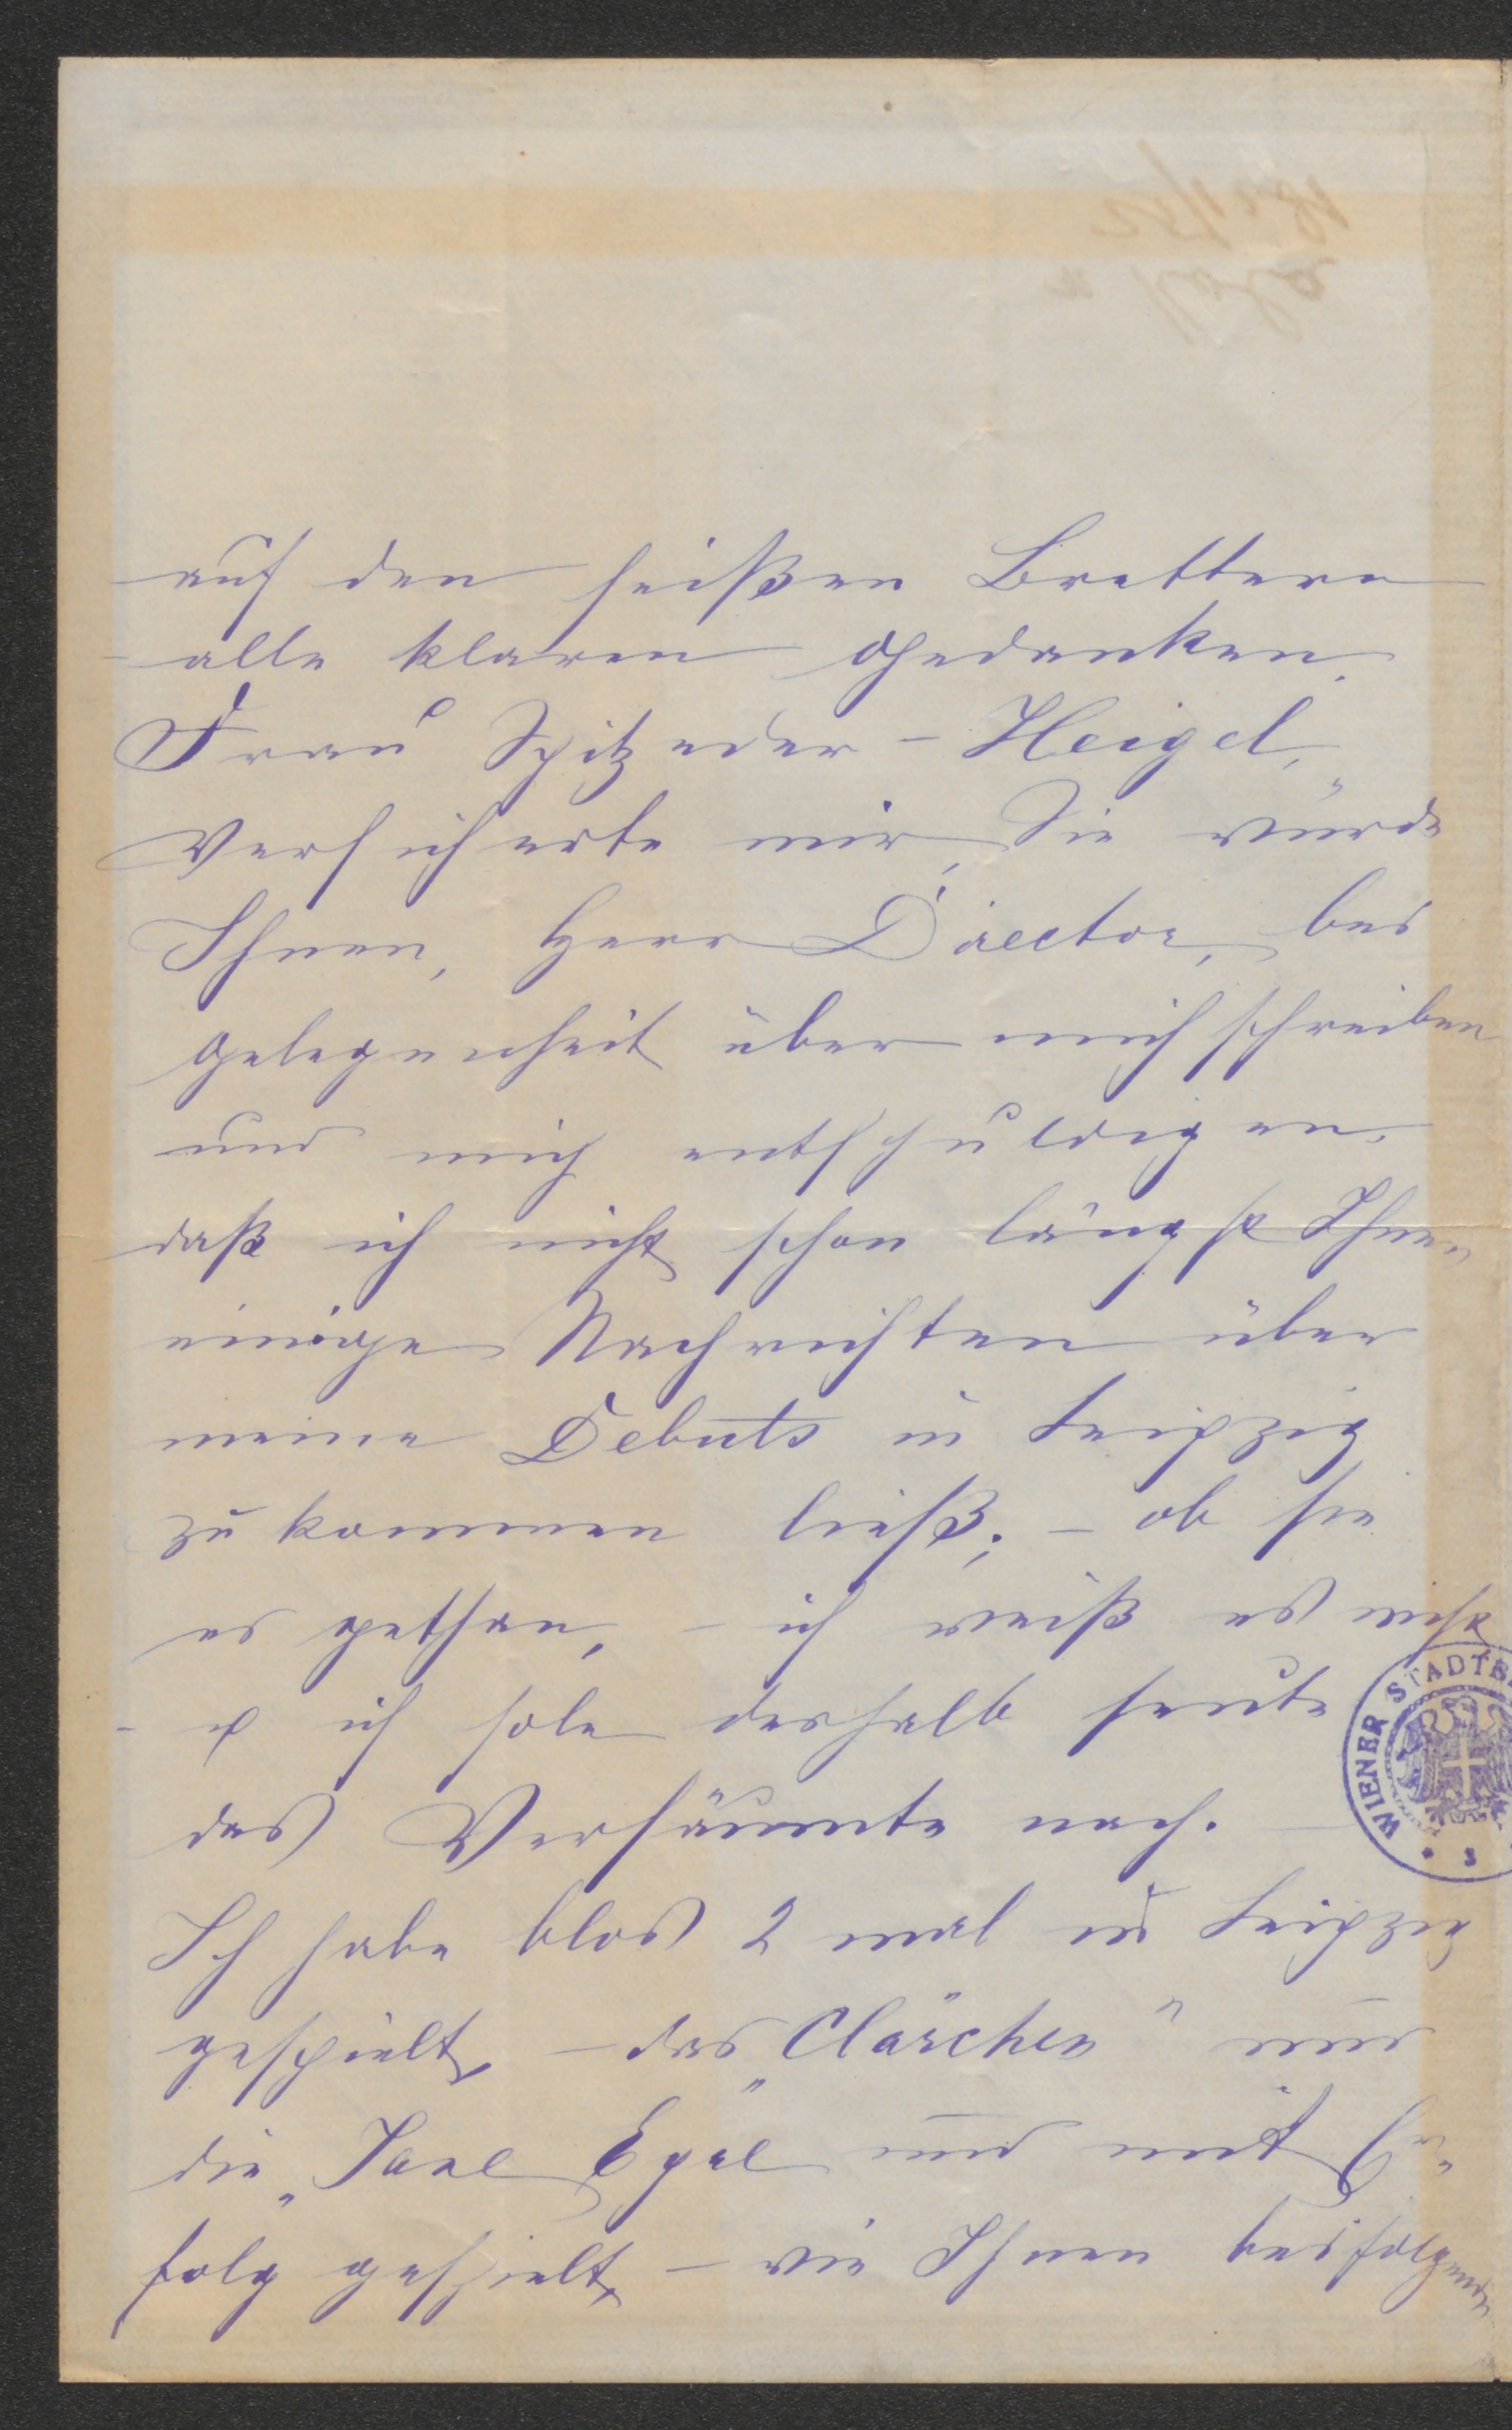 auf den heißen Brettern
alle klaren Gedanken.
Frau Spitzeder-Heigel,
versicherte mir, Sie würde
Ihnen, Herr Director, bei
Gelegenheit über mich schreiben
und mich entschuldigen,
daß ich nicht schon längst Ihnen
einige Nachrichten über
meine Debuts in Leipzig
zukommen ließ; – ob sie
es gethan, – ich weiß es nicht
– ich hole deshalb heute
das Versäumte nach. –
Ich habe blos 2 mal in Leipzig
gespielt, – das „Clärchen" und
die „Jane Eyre" und mit Er-
folg gespielt, – wie Ihnen beifolgende
WIENER STADTB